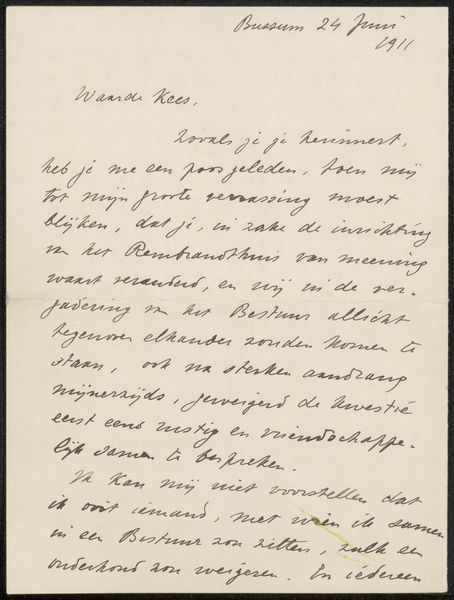 Bussum 24 Juni
1911
Waarde Kees,
Zooals je je herinnert,
heb je me een poos geleden, toen mij
tot mijn groote verrassing moest
blijken, dat je, in zake de inrichting
van het Rembrandthuis van meening
waart veranderd, en wij in de ver-
gadering van het Bestuur allicht
tegenover elkander zouden komen te
staan, ook na sterken aandrang
mijnerzijds, geweigerd de kwestie
eerst eens rustig en vriendschappe-
lijk samen te bespreken.
Ik kan mij niet voorstellen dat
ik ooit iemand, met wien ik samen
in een Bestuur zou zitten, zulk een
onderhoud zou weigeren. En iedereen